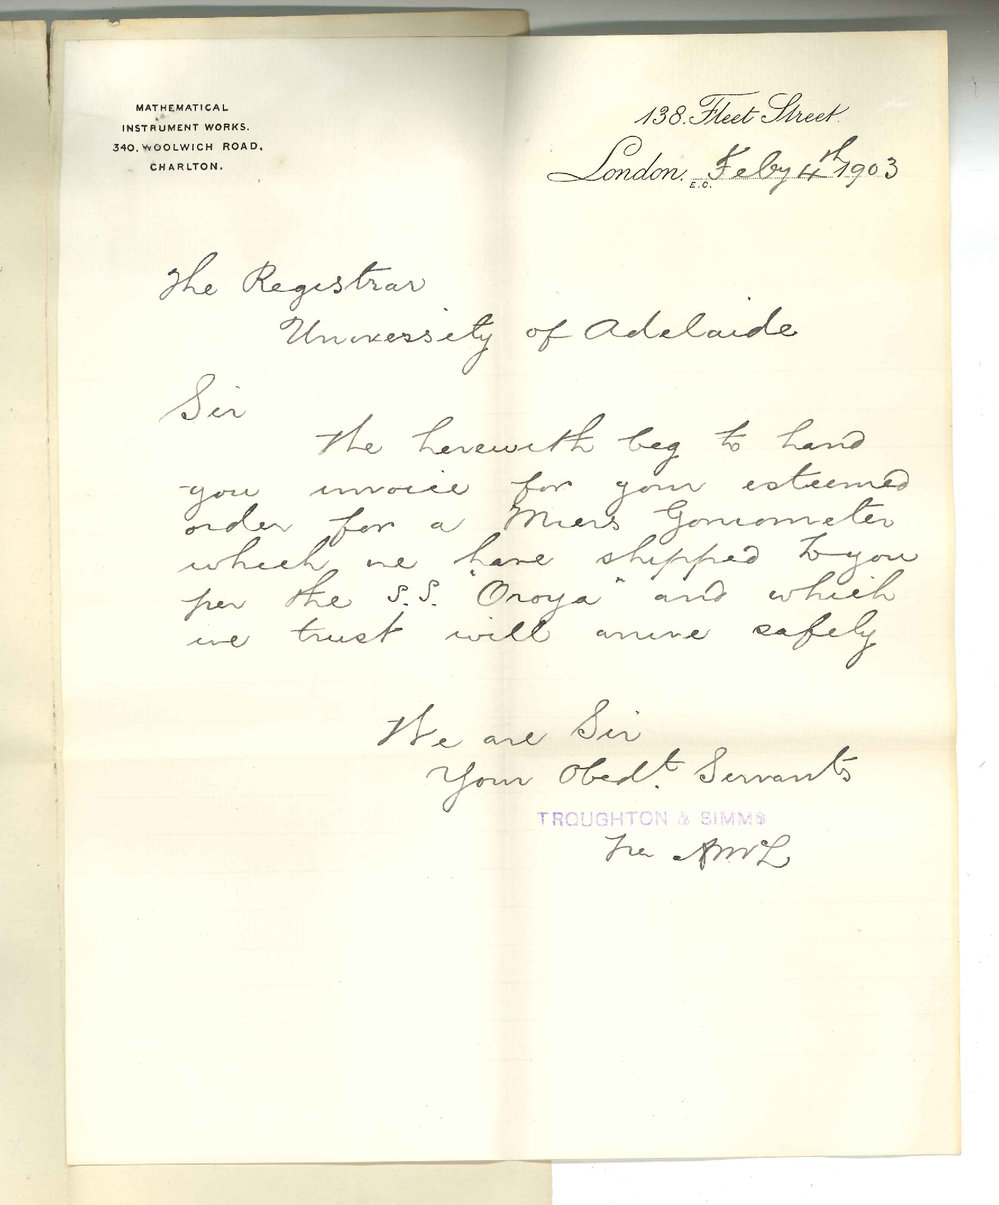 MATHEMATICAL
INSTRUMENT WORKS.
340, WOOLWICH ROAD,
CHARLTON.
138. Fleet Street.
London, E.C. Feby 4th 1903
The Registrar
University of Adelaide
Sir
We herewith beg to hand
you invoice for your esteemed
order for a Miers Goniometer
which we have shipped to you
per the S.S. "Oroya" and which
we trust will arrive safely
We are Sir
Your Obedt. Servants
TROUGHTON & SIMMS